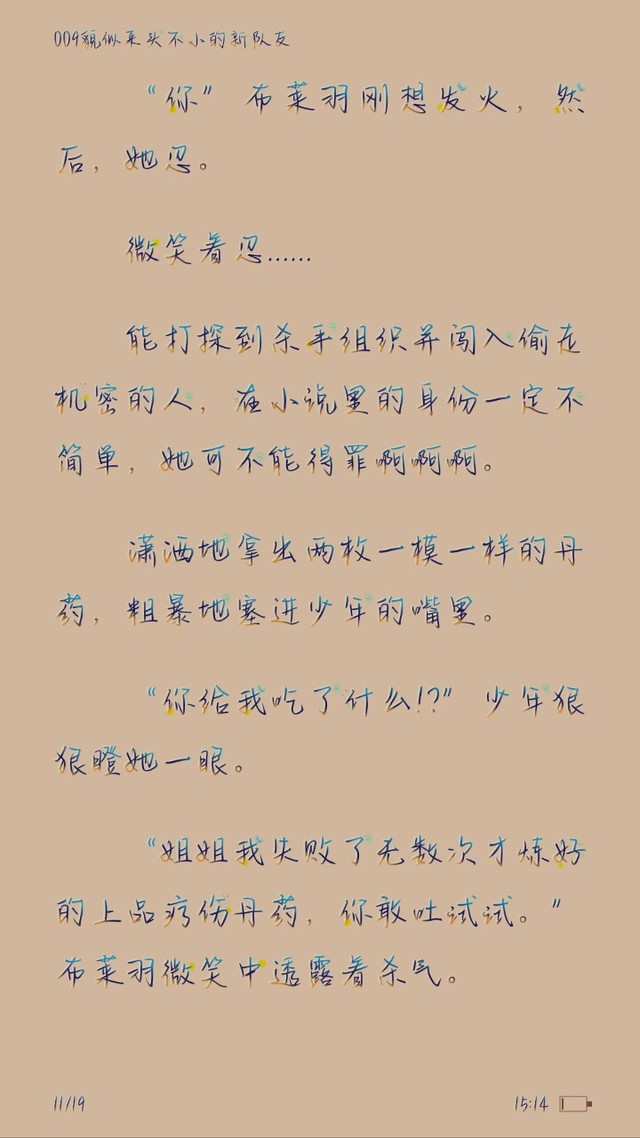 009貌似来头不小的新队友
“你”布莱羽刚想发火，然
后，她忍。
微笑着忍……
能打探到杀手组织并闯入偷走
机密的人，在小说里的身份一定不
简单，她可不能得罪啊啊啊。
潇洒地拿出两枚一模一样的丹
药，粗暴地塞进少年的嘴里。
“你给我吃了什么!?”少年狠
狠瞪她一眼。
“姐姐我失败了无数次才炼好
的上品疗伤丹药，你敢吐试试。”
布莱羽微笑中透露着杀气。
11/19
15:14